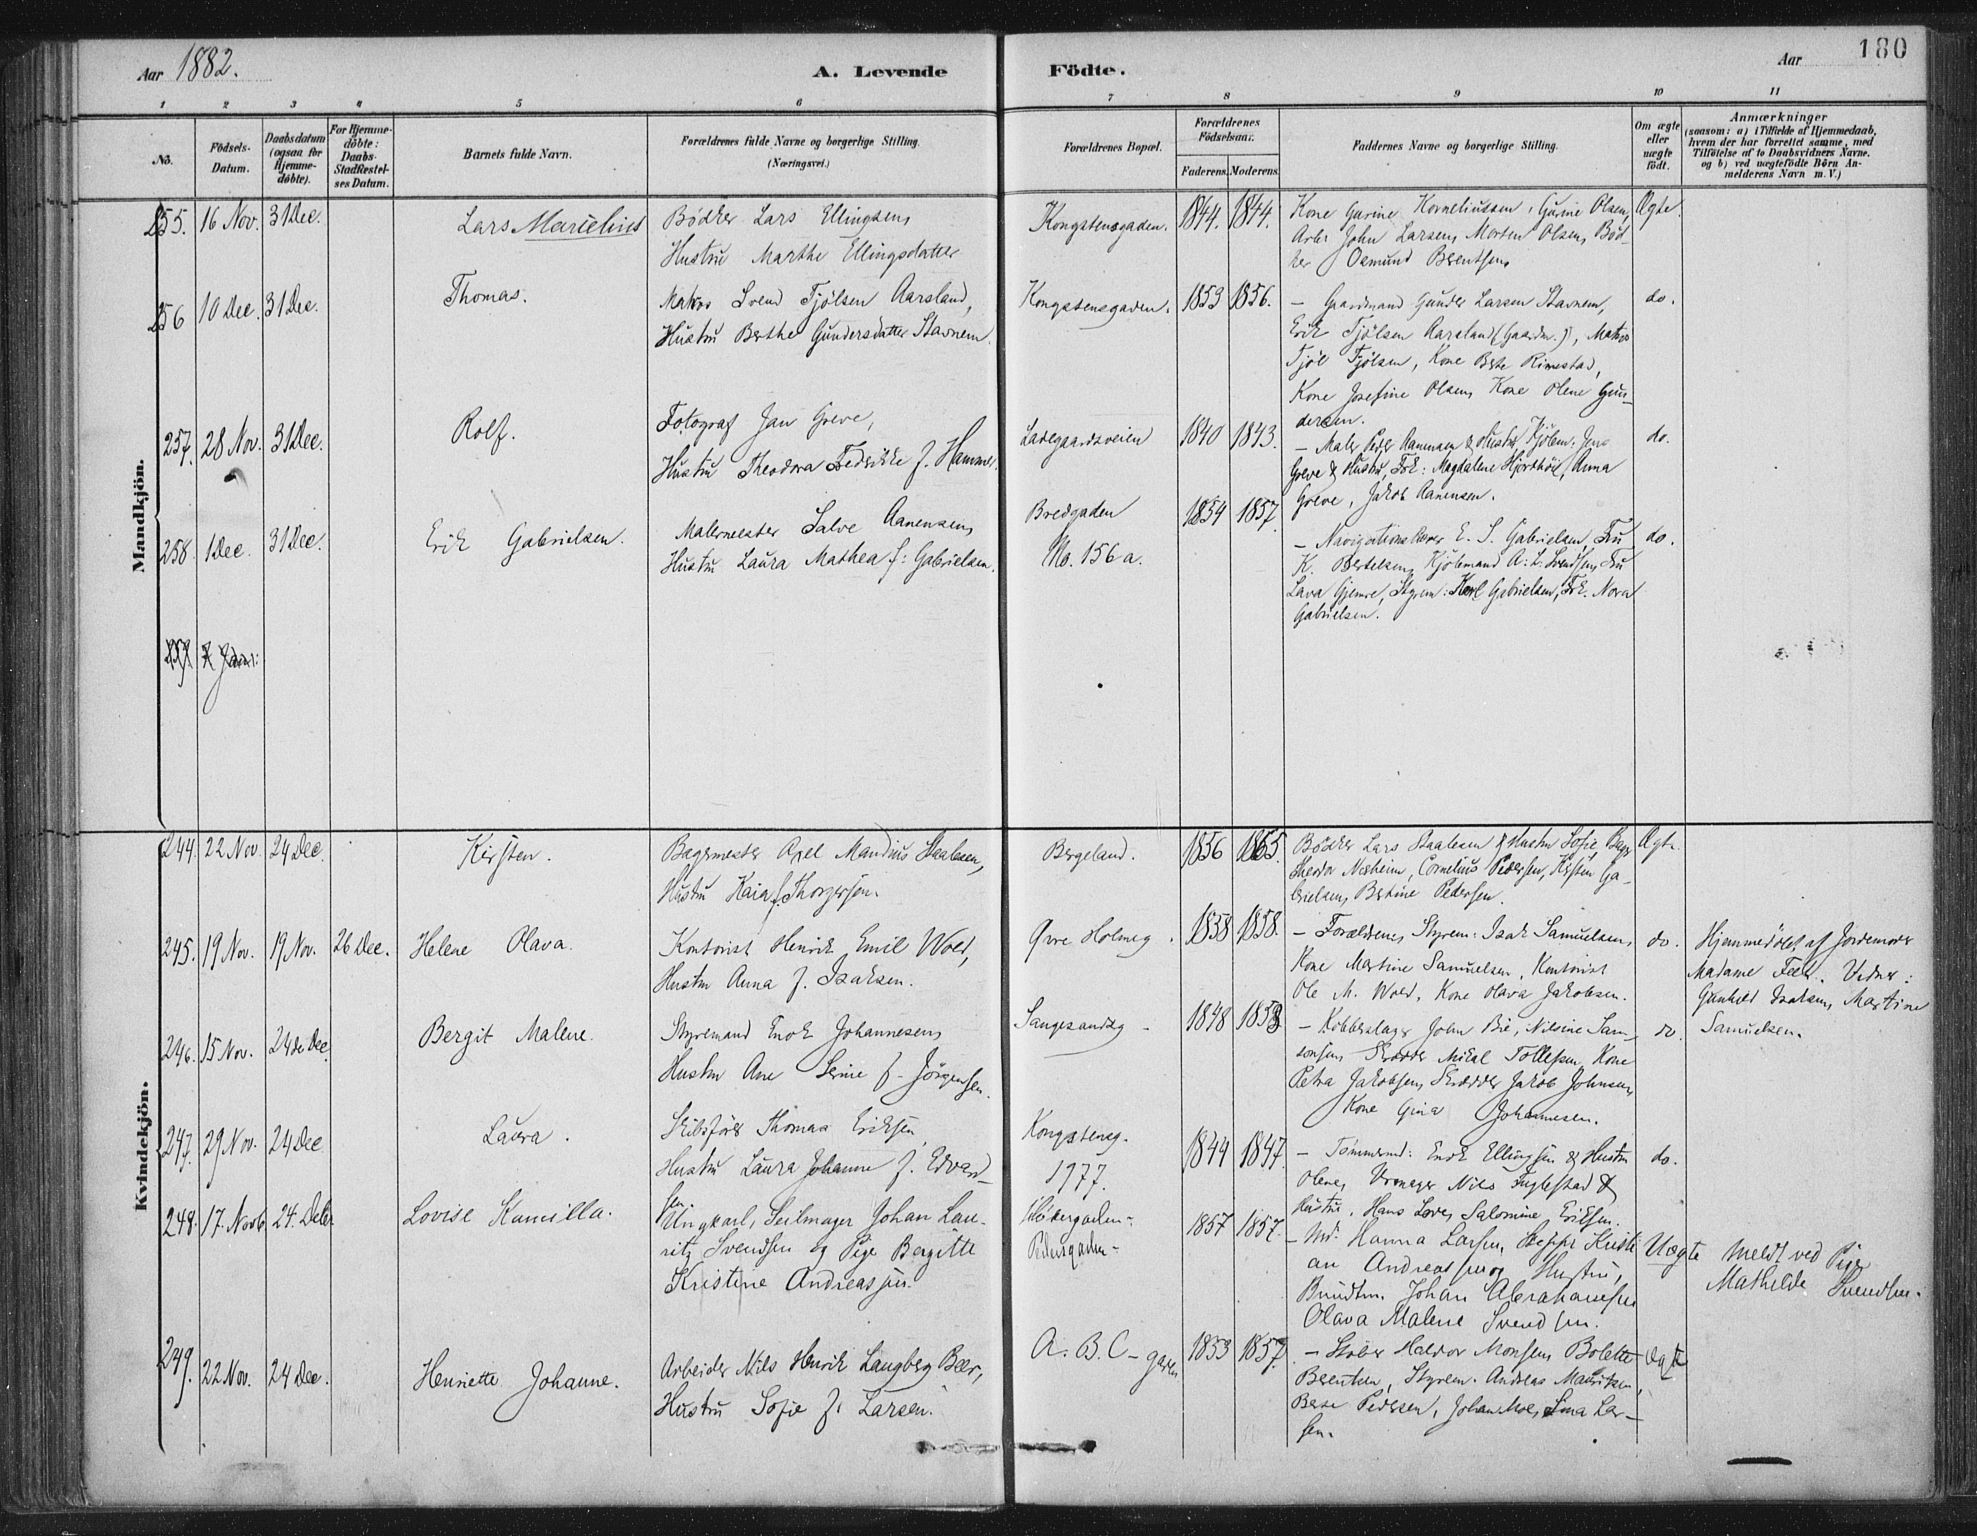 Aar 1882.
A. Levende Födte.
Aar
180
1 2 3 4 5 6 7 8 9 10 11
No.
Födsels-
Datum.
Daabsdatum
(ogsaa for
Hjemme-
døbte).
For Hjemme-
döbte:
Daabs-
Stadfæstel-
ses Datum.
Barnets fulde Navn.
Forældrenes fulde Navne og borgerlige Stilling.
(Næringsvei.)
Forældrenes Bopæl.
Forældrenes
Födselsaar.
Faderens.
Moderens.
Faddernes Navne og borgerlige Stilling.
Om ægte
eller
uægte
født.
Anmærkninger
(saasom: a) i Tilfælde af Hjemmedaab,
hvem der har forrettet samme, med
Tilføielse af to Daabsvidners Navne,
og b) ved uægtefödte Börn An-
melderens Navn m. V.)
Mandkjön.
255. 16 Nov. 31 Dec. Lars Marselius
Bödker Lars Ellingsen,
Hustru Marthe Ellingsdatter
Kongstensgaden. 1844. 1844.
Kone Gurine Korneliussen, Gurine Olsen,
Arb: John Larsen, Morten Olsen, Bød-
ker Osmund Berentsen
Ægte.
256 10 Dec. 31 Dec. Thomas.
Matros Svend Tjölsen Aarsland,
Hustru Berthe Gundersdatter Stavnem.
Kongstensgaden. 1853 1856.
— Gaardmand Gunder Larsen Stavnem,
Erik Tjölsen Aarsland (Gaardm.), Matros
Tjöl Tjölsen, Kone Berte Rimestad,
Kone Josefine Olsen, Kone Olene Gun-
dersen.
do.
257. 28 Nov. 31 Dec. Rolf.
Fotograf Jan Greve,
Hustru Theodora Fredrikke f. Hammer.
Ladegaardsveien 1840 1843.
— Maler Peder Aanensen & Hustru, Kjöbm. Jens
Greve & Hustru, Frk: Magdalene Hjorthöi, Anna
Greve, Jakob Aanensen.
do.
258. 1 Dec. 31 Dec. Erik Gabrielsen.
Malermester Salve Aanensen,
Hustru Laura Mathea f: Gabrielsen.
Bredgaden
No. 156 a.
1854 1857.
— Navigationslærer E. S. Gabrielsen, Fru
K. Bertelsen, Kjöbmand A. L. Svendsen, Fru
Lava Gjemre, Styrm: Karl Gabrielsen, Frk. Nora
Gabrielsen.
do.
259 7 Jan:
Kvindekjön.
244. 22 Nov. 24 Dec. Kirsten.
Bagermester Axel Mandius Staalesen,
Hustru Kaia f. Thorgersen.
Bergeland. 1856 1865.
Bödker Lars Staalesen & Hustru Sofie, Bager
Næsheim, Cornelius Pedersen, Kirsten Ga-
brielsen, Bertine Pedersen.
Ægte.
245. 19 Nov. 19 Nov. 26 Dec. Helene Olava.
Kontorist Henrik Emil Wold,
Hustru Anna f. Isaksen.
Øvre Holmeg. 1858 1858.
— Forældrene, Styrm: Isak Samuelsen,
Kone Martine Samuelsen, Kontorist
Ole M. Wold, Kone Olava Jakobsen.
do.
Hjemmedöbt af Jordemoder
Madame Feed. Vidner:
Gunhild Isaksen, Martine
Samuelsen.
246. 15 Nov. 24de Dec. Bergit Malene.
Styrmand Enok Johannesen,
Hustru Ane Serine f. Jörgensen.
Langesandsg. 1848 1858
— Kobberslager John Bie, Nilsine Sam-
sonsen, Skrædder Mikal Tollefsen, Kone
Petra Jakobsen, Skrædder Jakob Johnsen,
Kone Gina Johannesen.
do.
247. 29 Nov. 24 Dec. Laura.
Skibsförer Thomas Eriksen,
Hustru Laura Johanne f. Edvard-
sen
Kongstensg.
1977.
1844 1847.
— Tömmerm: Enok Ellingsen & Hustru
Olene, Urmager Nils Fuglestad &
Hustru, Hans Love, Salomine Eriksen.
do.
248. 17. Novb 24. Decbr Lovise Kamilla.
Ungkarl, Seilmager Johan Lau-
ritz Svendsen og Pige Bergitte
Kristine Andreassen.
Pedersgaden-
1857 1857.
— Md. Hanna Larsen, Skipper Kristi-
an Andreassen og Hustru,
Johan Abrahamsen
Olava Malene Svendsen.
Uægte
Meldt ved Pige
Mathilde Svendsen.
249. 22 Nov. 24 Dec. Henriette Johanne.
Arbeider Nils Henrik Langberg Beer,
Hustru Sofie f. Larsen.
A. B. C-gaden 1853 1857.
— Haldor Monsen, Bolette
Berentsen, Styrm. Andreas Mauritzen,
Berte Pedersen, Johan Moe, Lina Lar-
sen.
Ægte